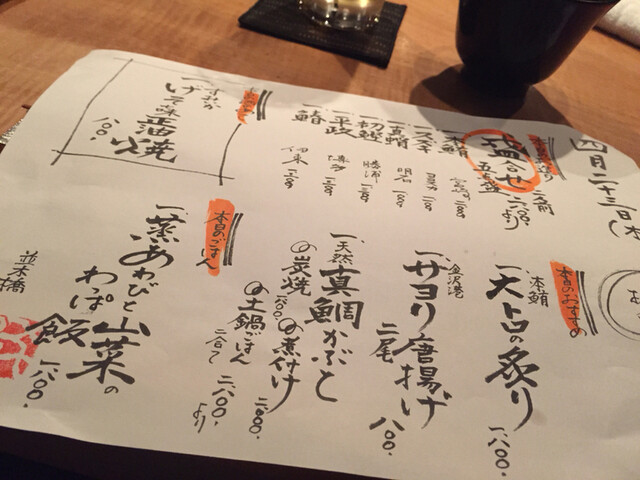 四月二十三日(木
盛合せ
二人前
二六〇〇.より
五点盛
一本鮪
一スズキ
一真鯖 明石
一初鰹 勝浦
一平政
一鰆
すみいか
一げそ味醂正油焼
八〇〇.
本日のおすすめ
本鮪
一大トロの炙り
一八〇〇.
金沢港
一サヨリ唐揚げ
二尾
八〇〇.
一天然真鯛かぶと
炭焼
煮付け
本日のごはん
土鍋ごはん
二合て
二六〇〇.より
一蒸しあわびと山菜の
わっぱ飯
一八〇〇.
並木橋